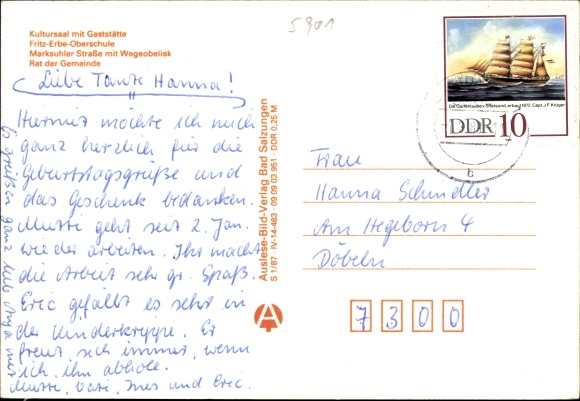 5901
Kultursaal mit Gaststätte
Fritz-Erbe-Oberschule
Marksuhler Straße mit Wegeobelisk
Rat der Gemeinde
Liebe Tante Hanna!
Hiermit möchte ich mich
ganz herzlich für die
Geburtstagsgrüße und
das Geschenk bedanken.
Mutti geht seit 2. Jan.
wieder arbeiten. Ihr macht
die Arbeit sehr gr. Spaß.
Eric gefällt es sehr in
der Kinderkrippe. Er
freut sich immer, wenn
ich ihn abhole.
Mutti, Vati, Ines und Eric.
Es grüßen ganz lieb Anja mit
Auslese-Bild-Verlag Bad Salzungen
S 1/87 · IV-14-483 · 09 09 03 951 · DDR 0,25 M
DDR 10
Frau
Hanna Schindler
Am Hegeborn 4
Döbeln
7300